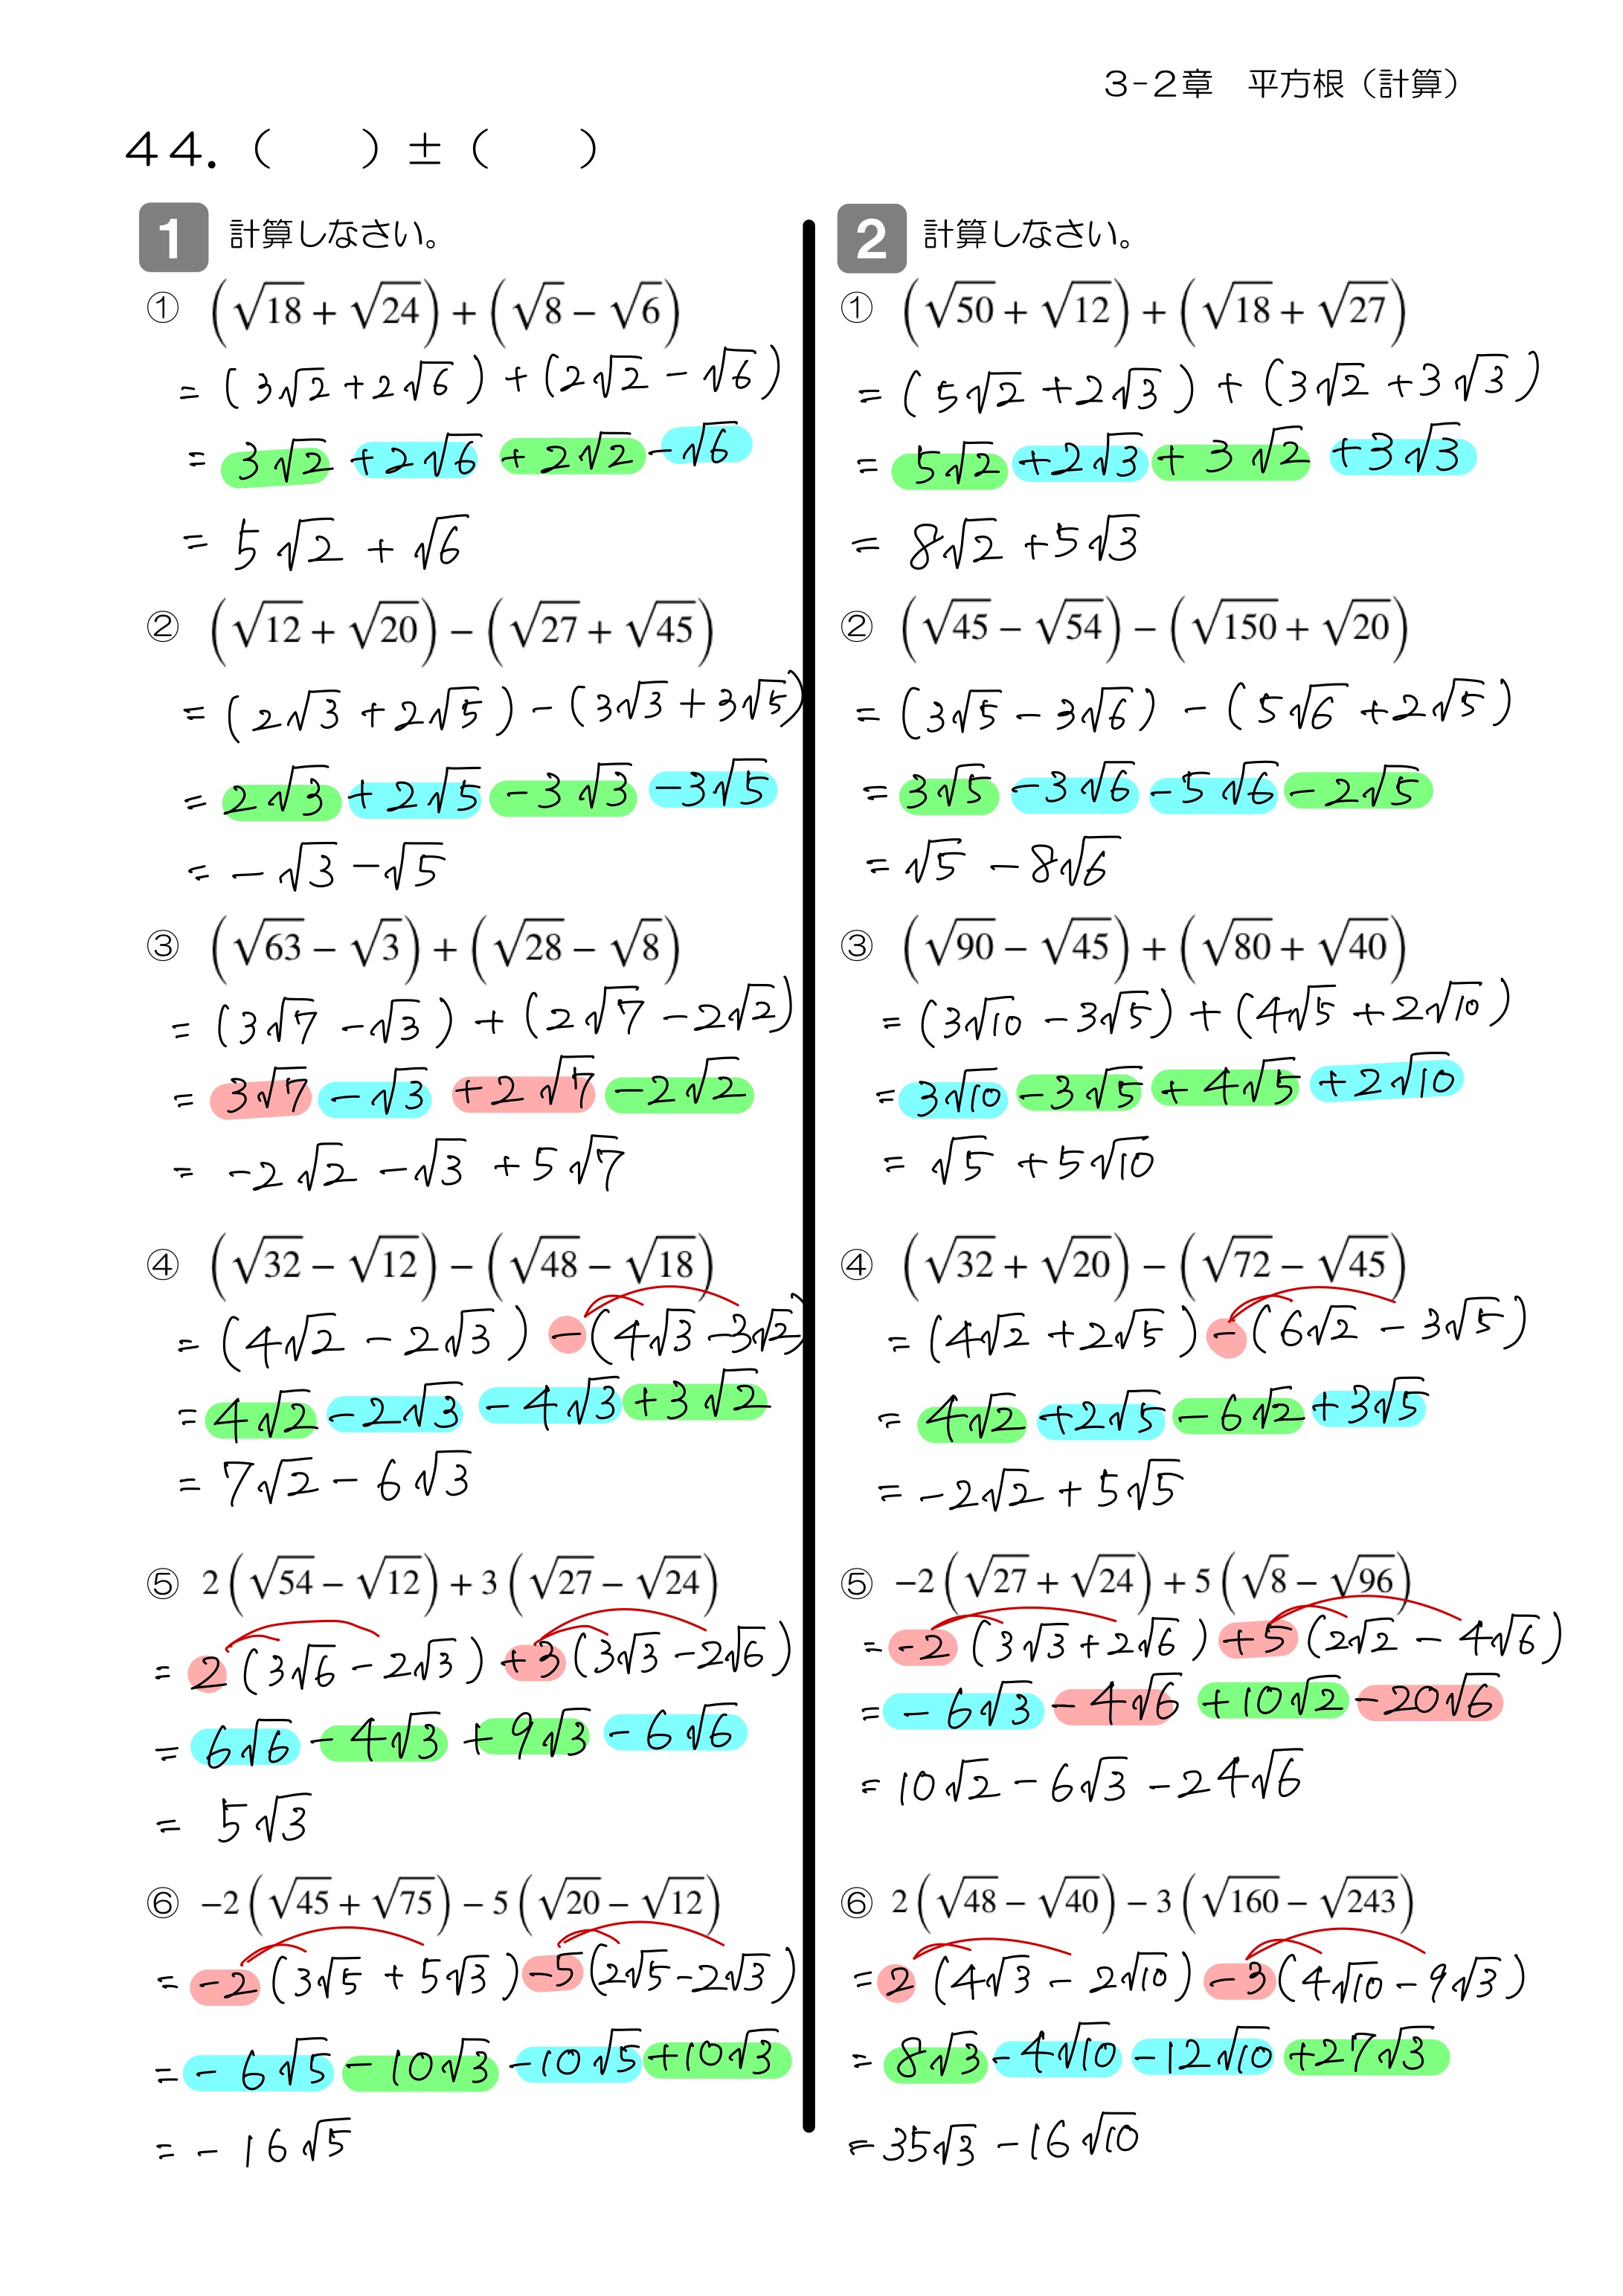 3-2章　平方根（計算）
44.（　　）±（　　）
1 計算しなさい。
① (√18 + √24) + (√8 − √6)
= (3√2 + 2√6) + (2√2 − √6)
= 3√2 + 2√6 + 2√2 − √6
= 5√2 + √6
② (√12 + √20) − (√27 + √45)
= (2√3 + 2√5) − (3√3 + 3√5)
= 2√3 + 2√5 − 3√3 − 3√5
= −√3 − √5
③ (√63 − √3) + (√28 − √8)
= (3√7 − √3) + (2√7 − 2√2)
= 3√7 − √3 + 2√7 − 2√2
= −2√2 − √3 + 5√7
④ (√32 − √12) − (√48 − √18)
= (4√2 − 2√3) − (4√3 − 3√2)
= 4√2 − 2√3 − 4√3 + 3√2
= 7√2 − 6√3
⑤ 2(√54 − √12) + 3(√27 − √24)
= 2(3√6 − 2√3) + 3(3√3 − 2√6)
= 6√6 − 4√3 + 9√3 − 6√6
= 5√3
⑥ −2(√45 + √75) − 5(√20 − √12)
= −2(3√5 + 5√3) − 5(2√5 − 2√3)
= −6√5 − 10√3 − 10√5 + 10√3
= −16√5
2 計算しなさい。
① (√50 + √12) + (√18 + √27)
= (5√2 + 2√3) + (3√2 + 3√3)
= 5√2 + 2√3 + 3√2 + 3√3
= 8√2 + 5√3
② (√45 − √54) − (√150 + √20)
= (3√5 − 3√6) − (5√6 + 2√5)
= 3√5 − 3√6 − 5√6 − 2√5
= √5 − 8√6
③ (√90 − √45) + (√80 + √40)
= (3√10 − 3√5) + (4√5 + 2√10)
= 3√10 − 3√5 + 4√5 + 2√10
= √5 + 5√10
④ (√32 + √20) − (√72 − √45)
= (4√2 + 2√5) − (6√2 − 3√5)
= 4√2 + 2√5 − 6√2 + 3√5
= −2√2 + 5√5
⑤ −2(√27 + √24) + 5(√8 − √96)
= −2(3√3 + 2√6) + 5(2√2 − 4√6)
= −6√3 − 4√6 + 10√2 − 20√6
= 10√2 − 6√3 − 24√6
⑥ 2(√48 − √40) − 3(√160 − √243)
= 2(4√3 − 2√10) − 3(4√10 − 9√3)
= 8√3 − 4√10 − 12√10 + 27√3
= 35√3 − 16√10